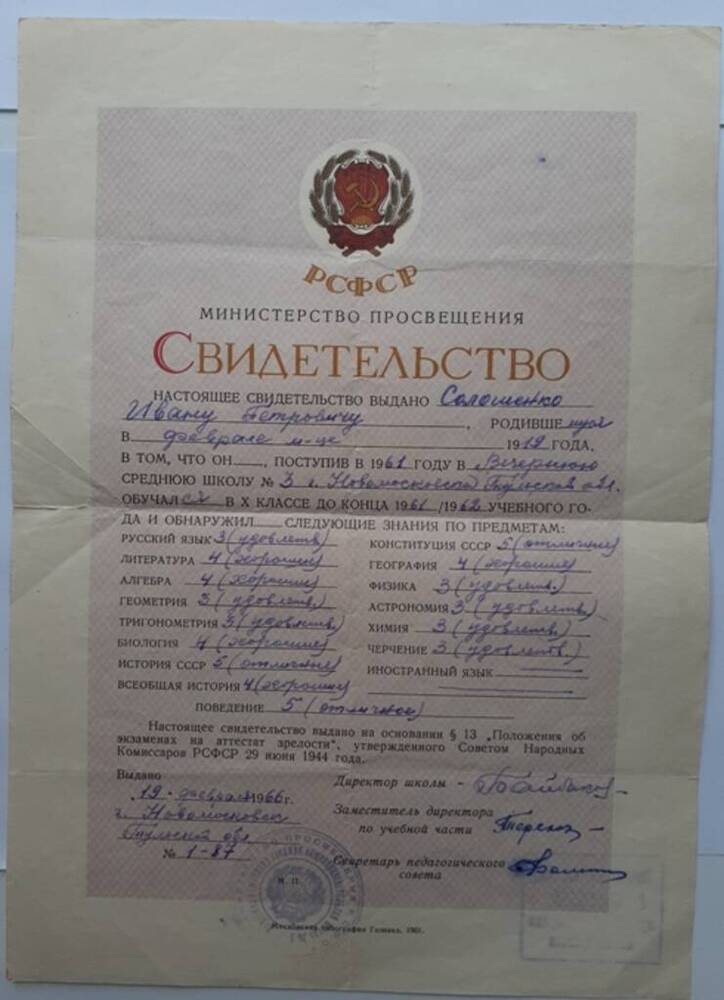 РСФСР
МИНИСТЕРСТВО ПРОСВЕЩЕНИЯ
СВИДЕТЕЛЬСТВО
НАСТОЯЩЕЕ СВИДЕТЕЛЬСТВО ВЫДАНО Солошенко
Ивану Петровичу, РОДИВШЕМУСЯ
В феврале м-це 1919 ГОДА,
В ТОМ, ЧТО ОН, ПОСТУПИВ В 1961 ГОДУ В Вечернюю
СРЕДНЮЮ ШКОЛУ № 3 г. Новомосковска Тульской обл.
ОБУЧАЛСЯ В X КЛАССЕ ДО КОНЦА 1961/1962 УЧЕБНОГО ГО-
ДА И ОБНАРУЖИЛ СЛЕДУЮЩИЕ ЗНАНИЯ ПО ПРЕДМЕТАМ:
РУССКИЙ ЯЗЫК 3 (удовлетв)
ЛИТЕРАТУРА 4 (хорошие)
АЛГЕБРА 4 (хорошие)
ГЕОМЕТРИЯ 3 (удовлетв.)
ТРИГОНОМЕТРИЯ 3 (удовлетв.)
БИОЛОГИЯ 4 (хорошие)
ИСТОРИЯ СССР 5 (отличные)
ВСЕОБЩАЯ ИСТОРИЯ 4 (хорошие)
КОНСТИТУЦИЯ СССР 5 (отличные)
ГЕОГРАФИЯ 4 (хорошие)
ФИЗИКА 3 (удовлетв.)
АСТРОНОМИЯ 3 (удовлетв.)
ХИМИЯ 3 (удовлетв.)
ЧЕРЧЕНИЕ 3 (удовлетв.)
ИНОСТРАННЫЙ ЯЗЫК
ПОВЕДЕНИЕ 5 (отличное)
Настоящее свидетельство выдано на основании § 13 „Положения об
экзаменах на аттестат зрелости“, утвержденного Советом Народных
Комиссаров РСФСР 29 июня 1944 года.
Выдано
19 февраля 1966 г.
г. Новомосковск
Тульской обл
№ 1-87
Директор школы -
Заместитель директора
по учебной части
Секретарь педагогического
совета
М. П.
Московская типография Гознака, 1961.